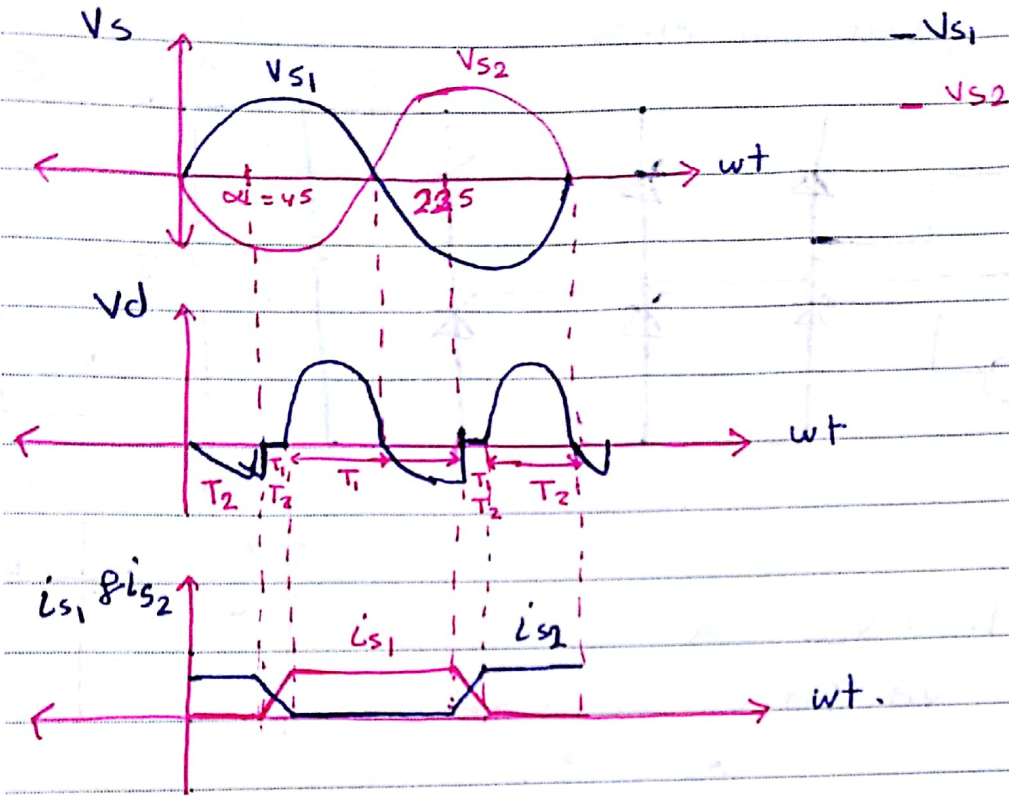 Vs
Vs1
Vs2
Vs1
Vs2
wt
α = 45
225
Vd
wt
T2
T1
T2
T1
T1
T2
T2
is1 & is2
is1
is2
wt.